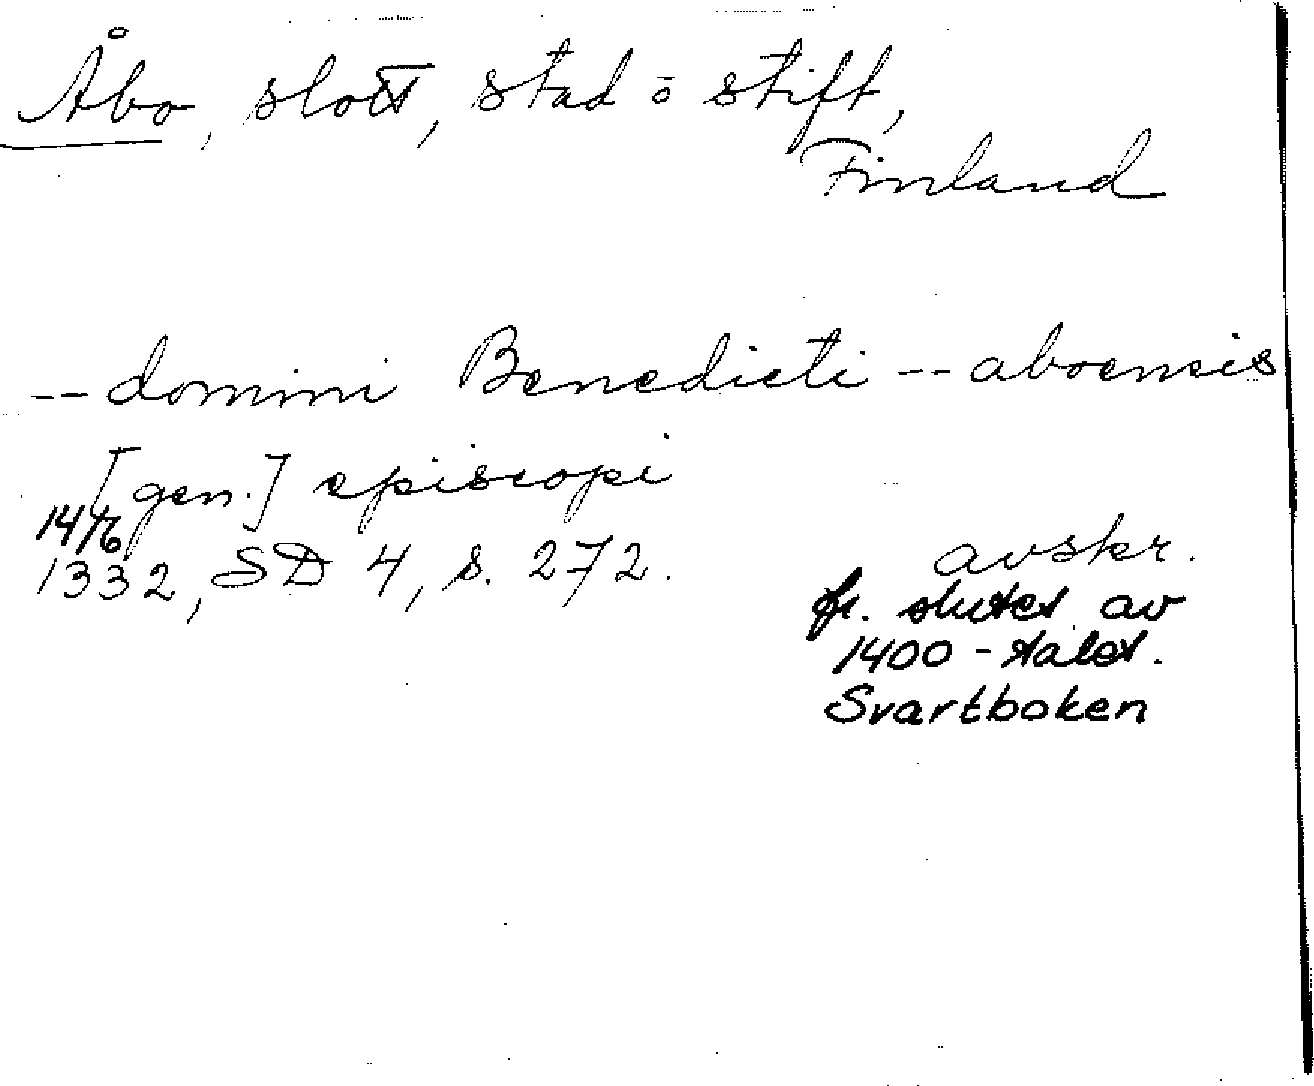 Åbo, slott, stad o stift,
Finland
-- domini Benedicti -- aboensis
[gen.] episcopi
14/6
1332, SD 4, s. 272.
avskr.
fr. slutet av
1400-talet.
Svartboken